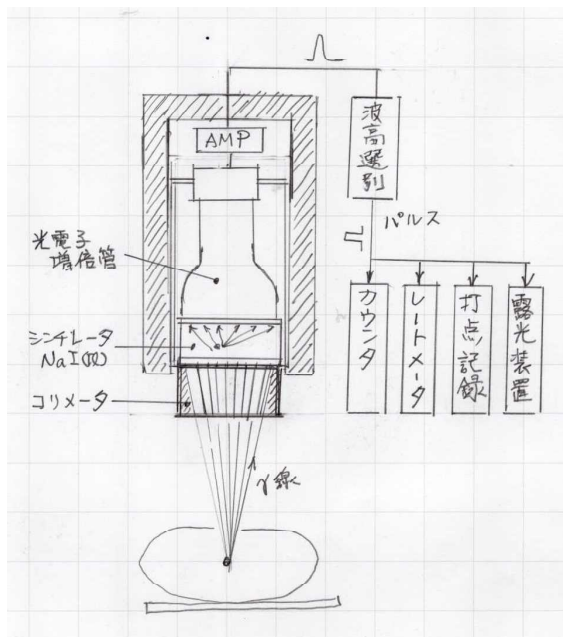 AMP
波高選別
光電子
増倍管
パルス
シンチレータ
NaI(Tl)
コリメータ
カウンタ
レートメータ
打点記録
露光装置
γ線